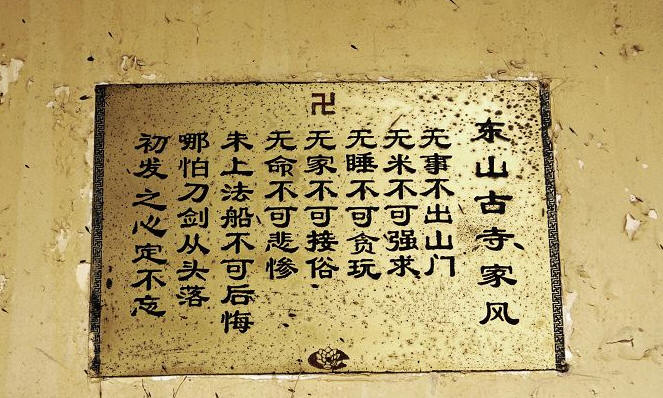 卍
东山古寺家风
无事不出山门
无米不可强求
无睡不可贪玩
无家不可接俗
无命不可悲惨
未上法船不可后悔
哪怕刀剑从头落
初发之心定不忘